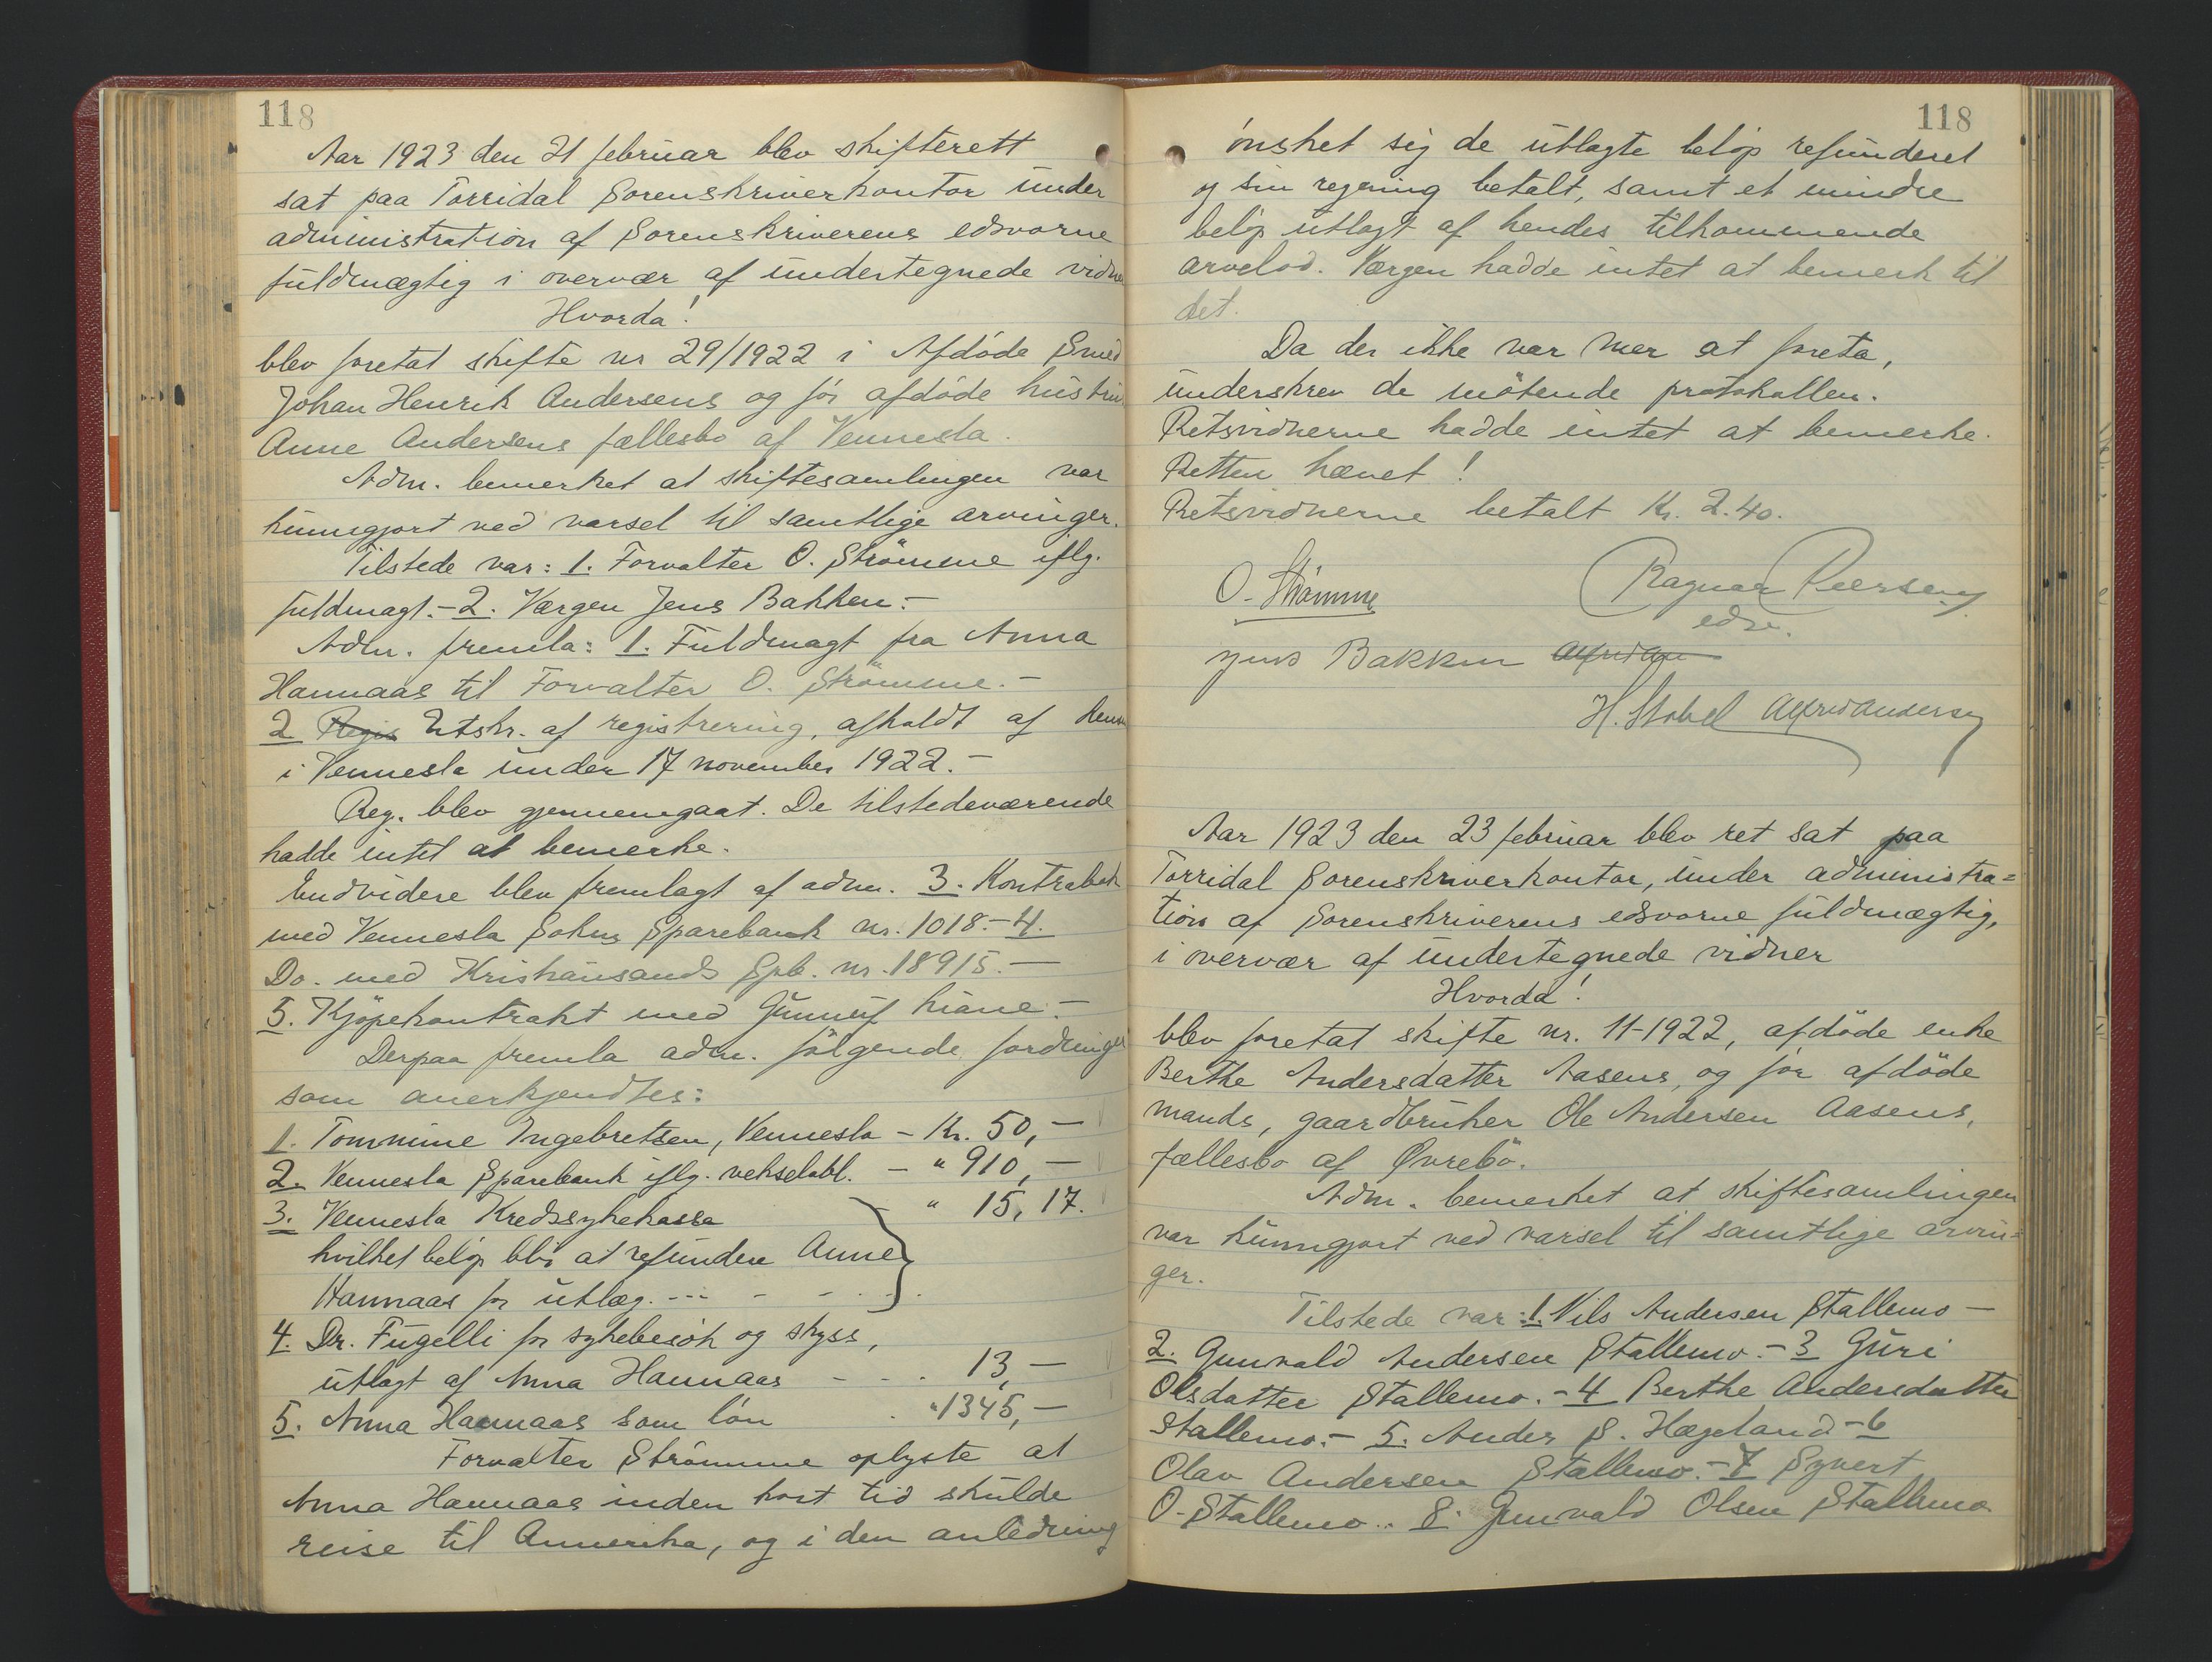 118
Aar 1923 den 21 februar blev skifterett
sat paa Torridal Sorenskriverkontor under
administration af Sorenskriverens edsvorne
fuldmægtig i overvær af undertegnede vidne
Hvorda!
blev foretat skifte nr 29/1922 i Afdöde Smed
Johan Henrik Andersens og för afdöde hustru
Anne Andersens fællesbo af Vennesla.
Adm. bemerket at skiftesamlingen var
kunngjort ved varsel til samtlige arvinger.
Tilstede var: 1. Forvalter O. Strömme iflg.
fuldmagt.- 2. Værgen Jens Bakken.-
Adm. fremla: 1. Fuldmagt fra Anna
Hannaas til Forvalter O. Strömme.-
2 Regis Utskr. af registrering, afholdt af
i Vennesla under 17 november 1922.-
Reg. blev gjennemgaat. De tilstedeværende
hadde intet at bemerke.
Endvidere blev fremlagt af adm. 3. Kontrabok
med Vennesla Sokns Sparebank nr. 1018.- 4.
Do. med Kristiansands Spb. nr. 18915.-
5. Kjöpekontrakt med
Derpaa fremla adm. fölgende fordringer
som anerkjendtes:
1. Tommine Ingebretsen, Vennesla - Kr. 50,-
2. Vennesla Sparebank iflg. vekselobl. - " 910,-
3. Vennesla Kredssykekasse - " 15,17.
hvilket belöp blir at refundere Anne
Hannaas for utlæg. --- - - . .
4. Dr. Fugelli for sykebesök og skyss,
utlagt af Anna Hannaas - - . 13,-
5. Anna Hannaas som lön . "1345,-
Forvalter Strömme oplyste at
Anna Hannaas inden kort tid skulde
reise til Amerika, og i den anledning
118
önsket sig de utlagte belöp refunderet
og sin regning betalt, samt et mindre
belöp utlagt af hendes tilkommende
arvelod. Værgen hadde intet at bemerk til
det.
Da der ikke var mer at foreta,
underskrev de mötende protokollen.
Retsvidnerne hadde intet at bemerke.
Retten hævet!
Retsvidnerne betalt Kr. 2.40.
O. Strømme Ragnar Peersen
edsv.
Jens Bakken
H. Stokel Alfred Andersen
Aar 1923 den 23 februar blev ret sat paa
Torridal Sorenskriverkontor, under administra=
tion af Sorenskriverens edsvorne fuldmægtig,
i overvær af undertegnede vidner
Hvorda!
blev foretat skifte nr. 11-1922, afdöde enke
Berthe Andersdatter Aasens, og för afdöde
mands, gaardbruker Ole Andersen Aasens,
fællesbo af Øvrebö.
Adm. bemerket at skiftesamlingen
var kunngjort ved varsel til samtlige arvin=
ger.
Tilstede var: 1. Nils Andersen Stallemo -
2. Gunvald Andersen Stallemo.- 3 Guri
Olsdatter Stallemo.- 4 Berthe Andersdatter
Stallemo.- 5. Anders S. Hægeland - 6
Olav Andersen Stallemo.- 7 Syvert
O. Stallemo.. 8. Gunvald Olsen Stallemo